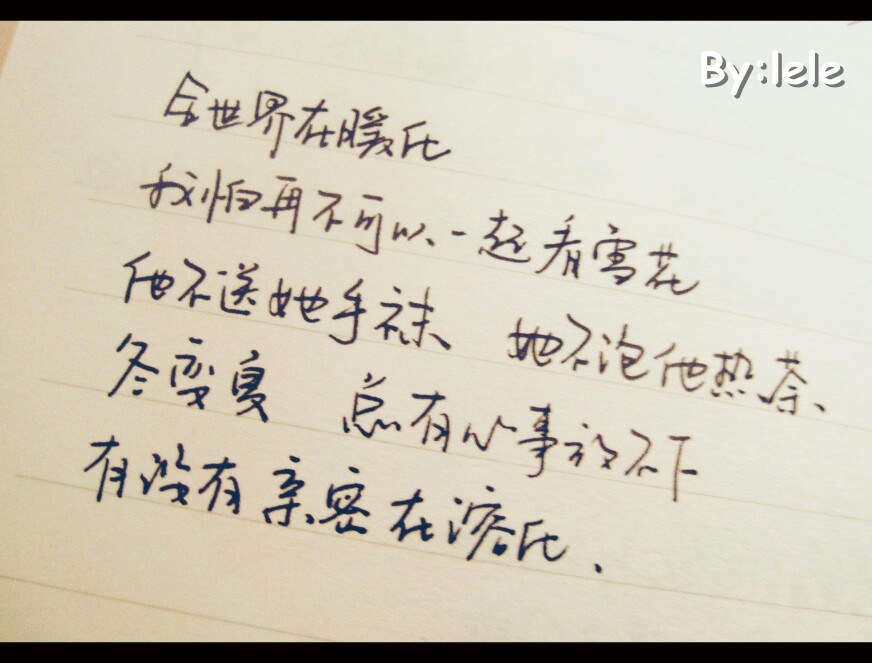 By:lele
全世界在暖化
我怕再不可以一起看雪花
他不送她手袜、 她不泡他热茶、
冬变夏 总有心事放不下
有没有亲密在溶化.